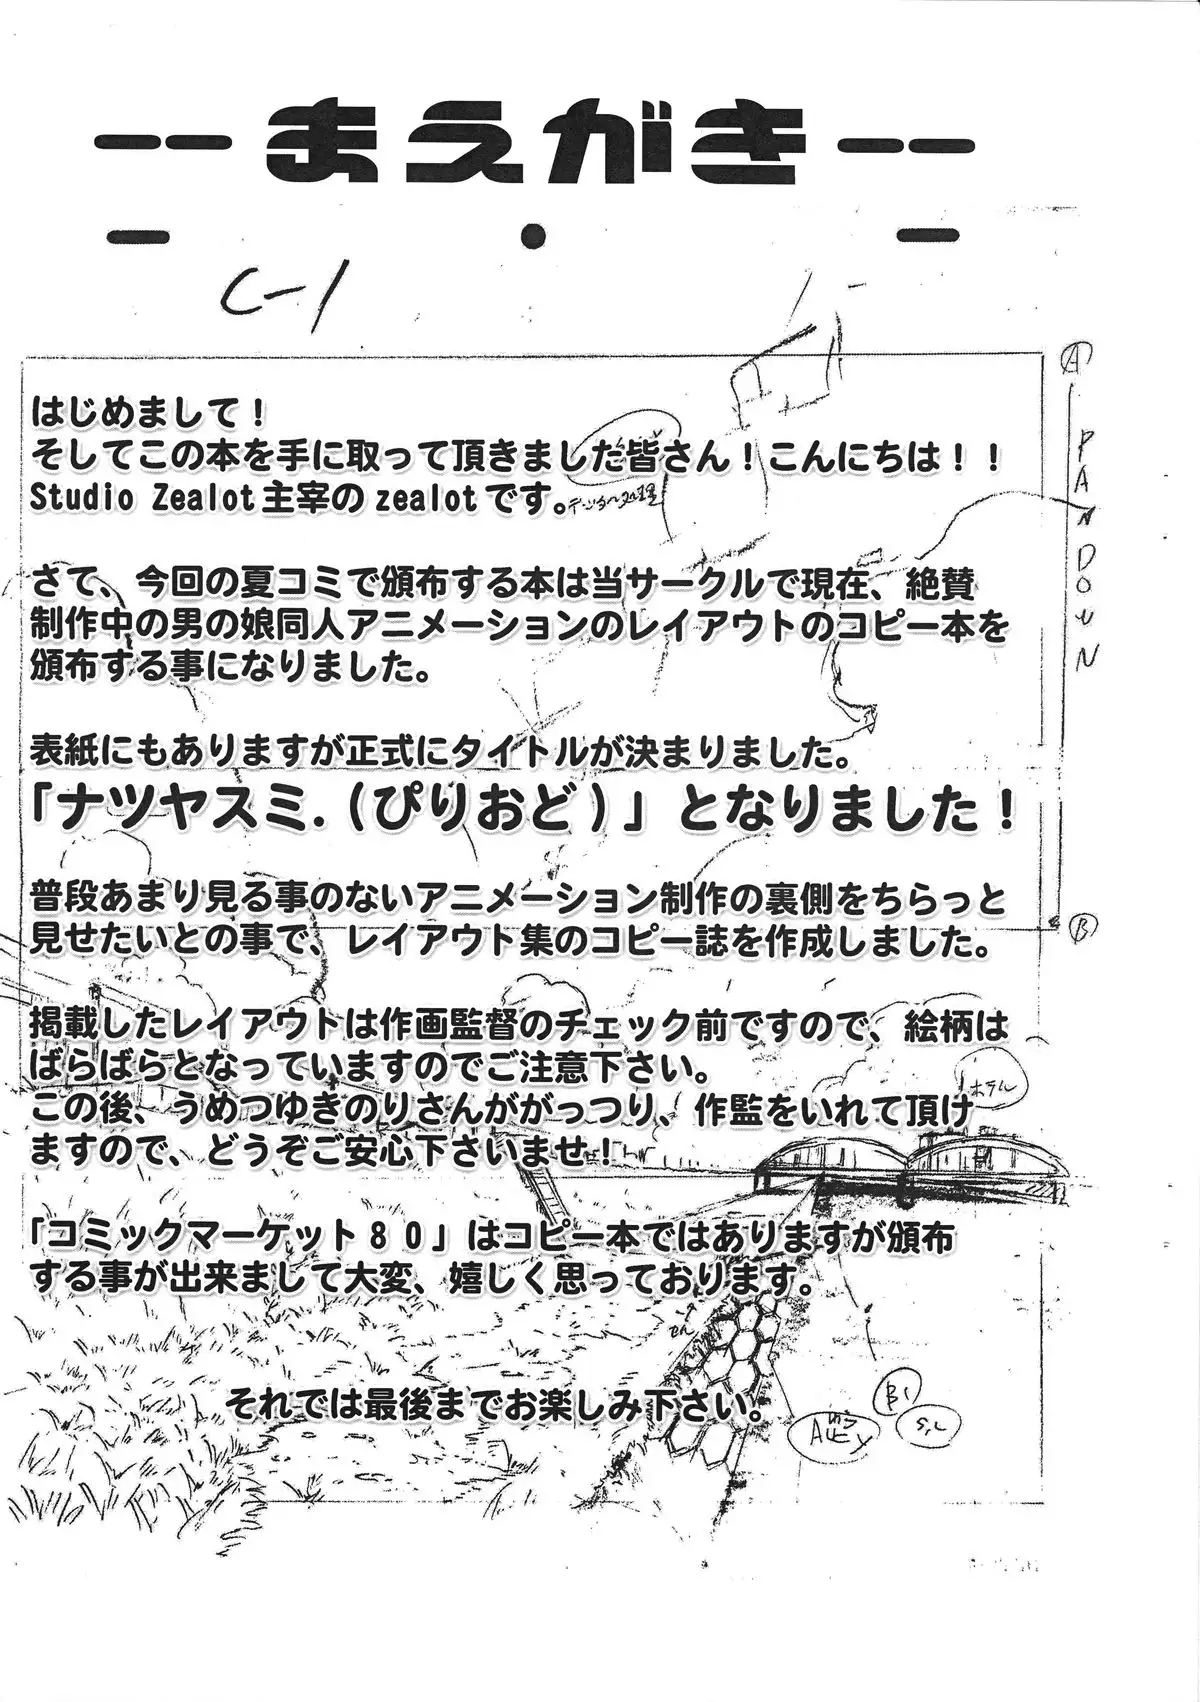 まえがき
C-1
はじめまして！
そしてこの本を手に取って頂きました皆さん！こんにちは！！
Studio Zealot主宰のzealotです。
さて、今回の夏コミで頒布する本は当サークルで現在、絶賛
制作中の男の娘同人アニメーションのレイアウトのコピー本を
頒布する事になりました。
表紙にもありますが正式にタイトルが決まりました。
「ナツヤスミ.(ぴりおど)」となりました！
普段あまり見る事のないアニメーション制作の裏側をちらっと
見せたいとの事で、レイアウト集のコピー誌を作成しました。
掲載したレイアウトは作画監督のチェック前ですので、絵柄は
ばらばらとなっていますのでご注意下さい。
この後、うめつゆきのりさんががっつり、作監をいれて頂け
ますので、どうぞご安心下さいませ！
「コミックマーケット８０」はコピー本ではありますが頒布
する事が出来まして大変、嬉しく思っております。
それでは最後までお楽しみ下さい。
A
PAN DOWN
B
ホテル
B1
S,L